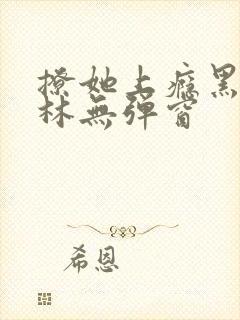 撩她上癮黑
林無彈窗
希恩